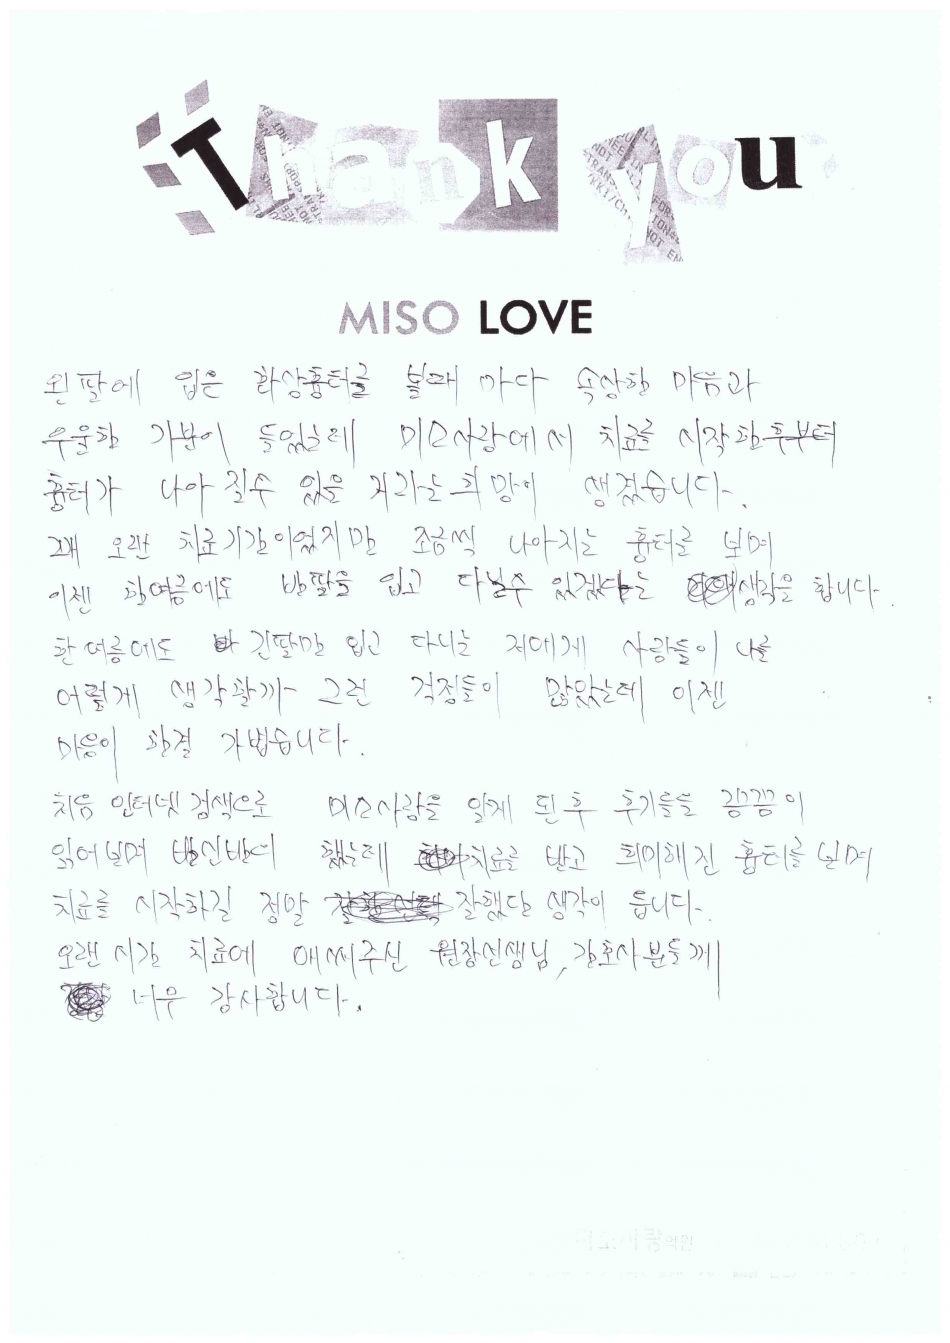 Thank you
MISO LOVE
왼팔에 입은 화상흉터를 볼때 마다 속상한 마음과
우울한 기분이 들었는데 미소사랑에서 치료를 시작한후부터
흉터가 나아 질수 있을 거라는 희망이 생겼습니다.
꽤 오랜 치료기간이었지만 조금씩 나아지는 흉터를 보며
이젠 한여름에도 반팔을 입고 다닐수 있겠다는 생각을 합니다.
한여름에도 긴팔만 입고 다니는 저에게 사람들이 나를
어떻게 생각할까 그런 걱정들이 많았는데 이젠
마음이 한결 가볍습니다.
처음 인터넷 검색으로 미소사랑을 알게 된후 후기들을 꼼꼼이
읽어보며 반신반의 했는데 치료를 받고 희미해진 흉터를 보며
치료를 시작하길 정말 잘했단 생각이 듭니다.
오랜 시간 치료에 애써주신 원장선생님, 간호사분들께
너무 감사합니다.